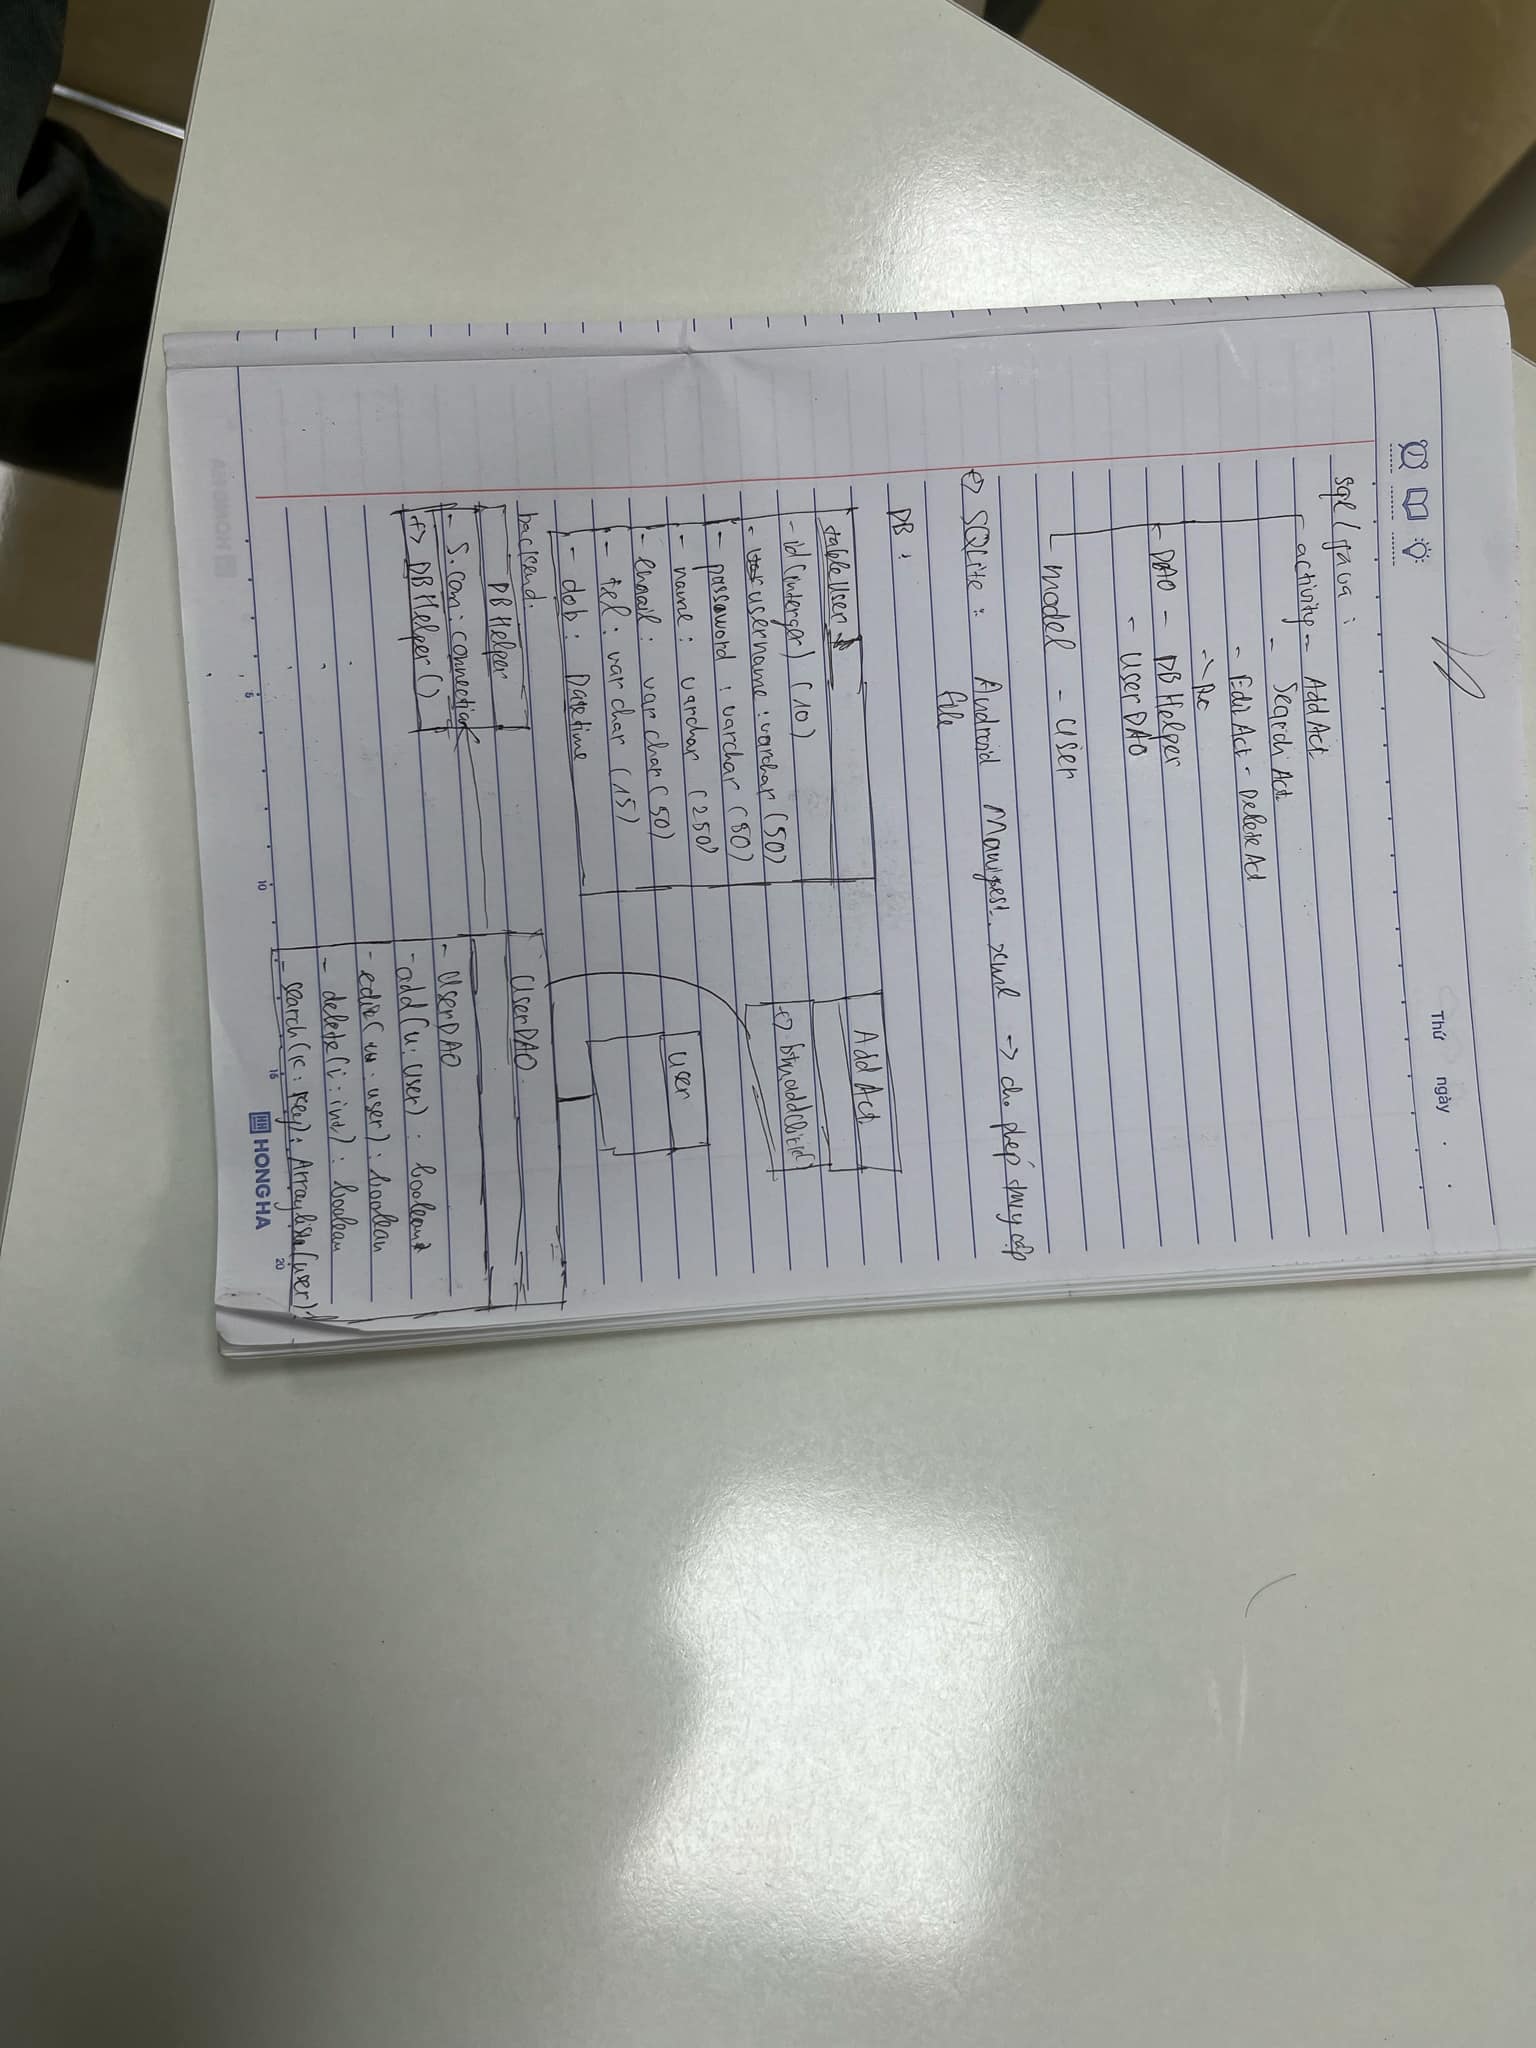 Thứ ngày . .
sql/java:
activity - AddAct
- Search Act
- Edit Act - Delete Act
DAO - DBHelper
- UserDAO
model - User
SQLite: Android Manifest.xml -> cho phép truy cập
file
DB:
table User
- id (interger) (10)
- username: varchar (50)
- password: varchar (80)
- name: varchar (250)
- email: varchar (50)
- tel: varchar (15)
- dob: Datetime
AddAct
User
backend.
DBHelper
- S.con: connection
+> DBHelper()
UserDAO.
- UserDAO
- add(u: User): boolean
- edit(u: user): boolean
- delete(i: int): boolean
- search(k: key): Arraylist(user)
5 10 15 20
HONG HA